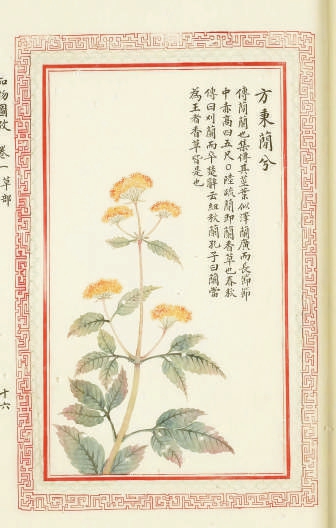 方秉蕑兮
傳蕑蘭也集傳其莖葉似澤蘭廣而長節節
中赤高四五尺〇陸疏蕑即蘭香草也春秋
傳曰刈蘭而卒楚辭云紉秋蘭孔子曰蘭當
為王者香草皆是也
品物圖攷 卷一草部
十六